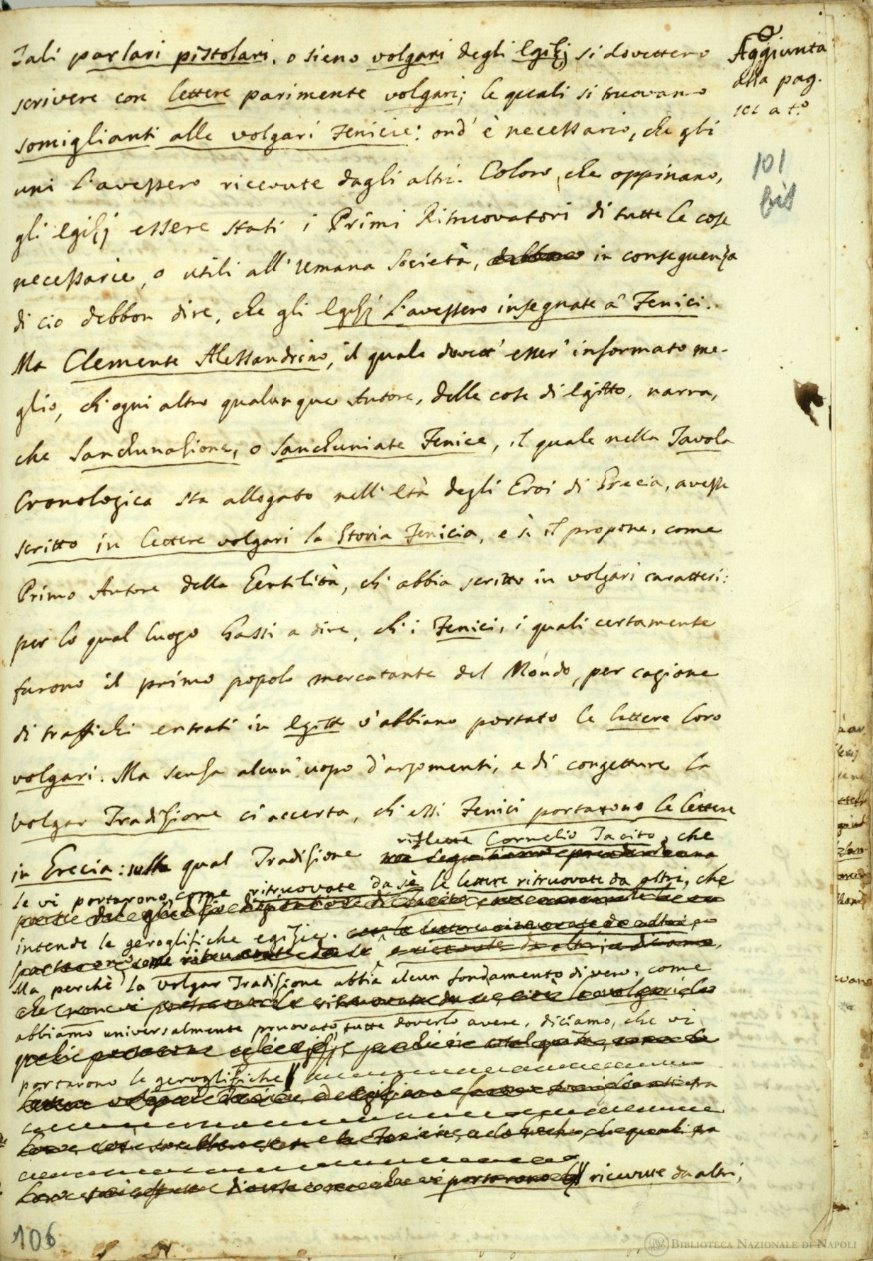 Tali parlari pistolari, o sieno volgari degli Egizj si dovettero
scrivere con lettere parimente volgari; le quali si truovano
somiglianti alle volgari Fenicie: ond' è necessario, che gli
uni l'avessero ricevute dagli altri. Coloro, che oppinano,
gli Egizj essere stati i Primi Ritruovatori di tutte le cose
necessarie, o utili all'Umana Società, debbono in conseguenza
di ciò debbon dire, che gli Egizj l'avessero insegnate a' Fenici.
Ma Clemente Alessandrino, il quale dovett' esser' informato me-
glio, ch'ogni altro qualunque Autore, delle cose di Egitto, narra,
che Sanchunazione, o Sancuniate Fenice, il quale nella Tavola
Cronologica sta allogato nell'Età degli Eroi di Grecia, avesse
scritto in lettere volgari la Storia Fenicia, e sì il propone, come
Primo Autore della Gentilità, ch'abbia scritto in volgari caratteri:
per lo qual luogo hassi a dire, ch'i Fenici, i quali certamente
furono il primo popolo mercatante del Mondo, per cagione
di traffichi entrati in Egitto v'abbiano portato le lettere loro
volgari. Ma senza alcun' uopo d'argomenti, e di congetture la
volgar Tradizione ci accerta, ch'essi Fenici portarono le lettere
in Grecia: sulla qual Tradizione riflette Cornelio Tacito, che
le vi portarono come ritruovate da sè le lettere ritruovate da altri, che
intende le geroglifiche egizie.
Ma perchè la volgar Tradizione abbia alcun fondamento di vero, come
abbiamo universalmente pruovato, tutte doverlo avere, diciamo, che vi
portarono le geroglifiche
ricevute da altri,
Aggiunta
alla pag.
101
bis
106
BIBLIOTECA NAZIONALE DI NAPOLI